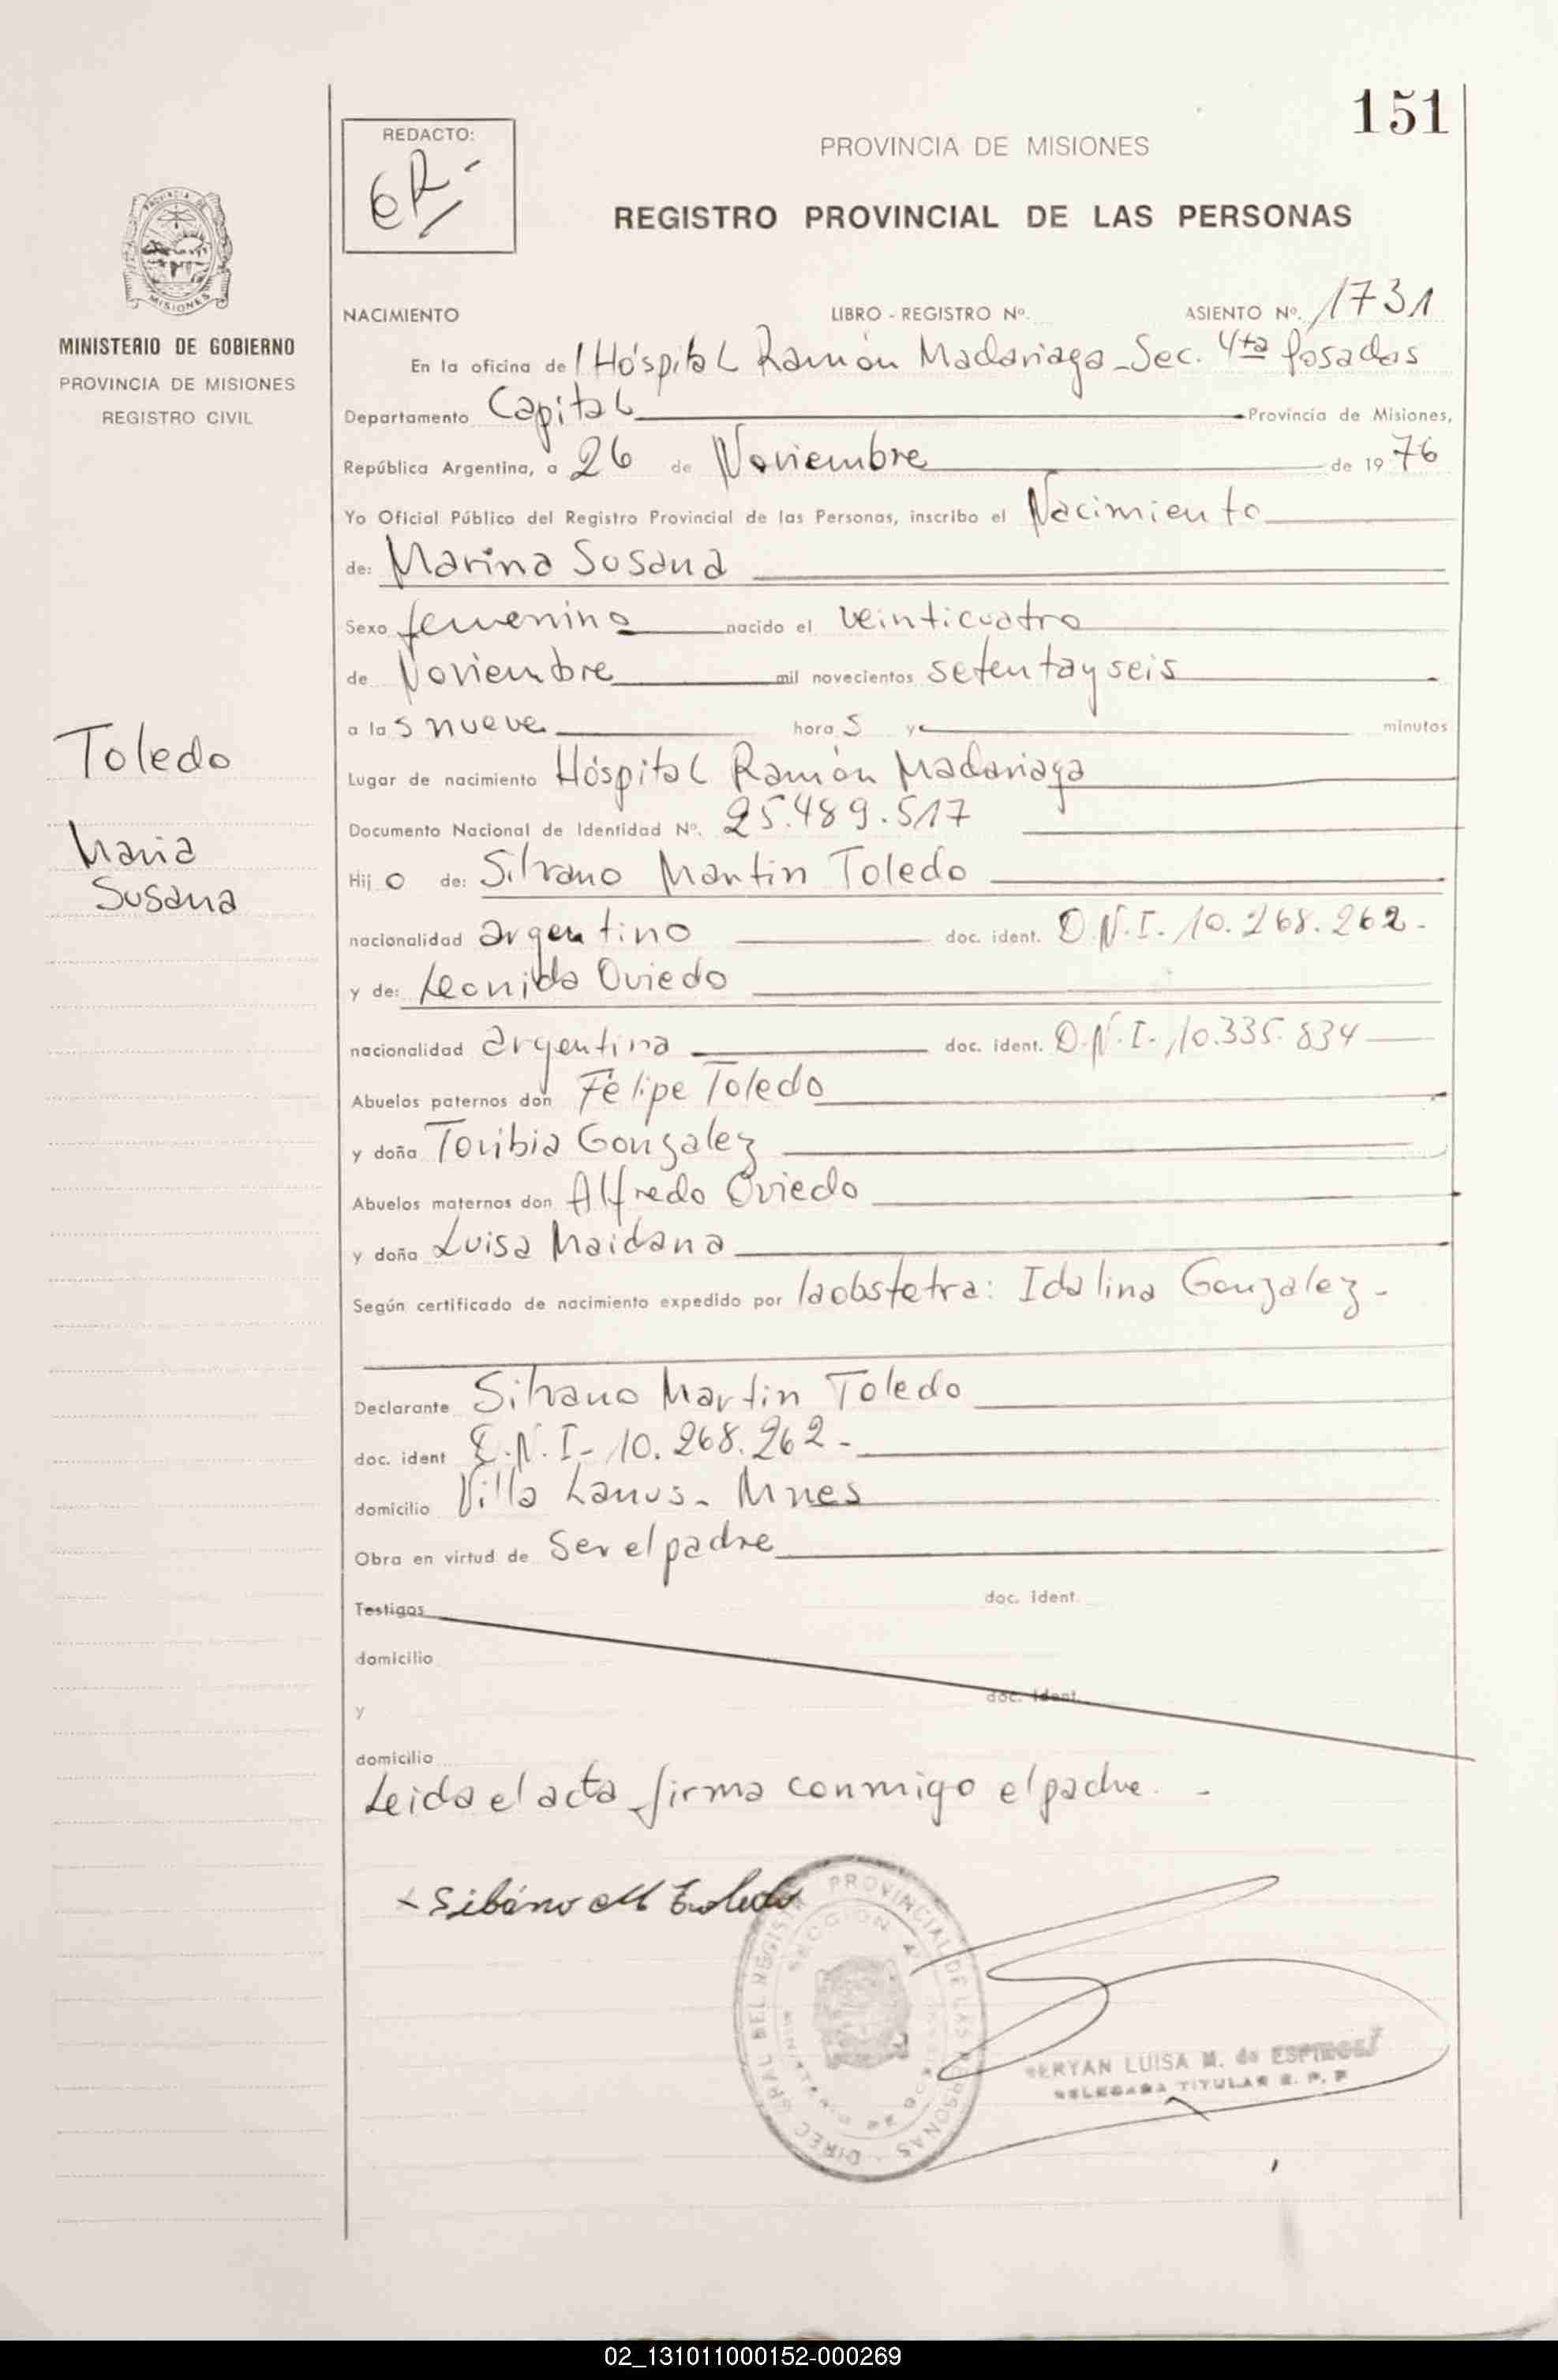 151
REDACTO:
PROVINCIA DE MISIONES
REGISTRO PROVINCIAL DE LAS PERSONAS
MINISTERIO DE GOBIERNO
PROVINCIA DE MISIONES
REGISTRO CIVIL
NACIMIENTO LIBRO - REGISTRO Nº. ASIENTO Nº. 1731
En la oficina de l Hóspital Ramón Madariaga - Sec. 4ta Posadas
Departamento Capital Provincia de Misiones,
República Argentina, a 26 de Noviembre de 1976
Yo Oficial Público del Registro Provincial de las Personas, inscribo el Nacimiento
de: Marina Susana
Sexo femenino nacido el veinticuatro
de Noviembre mil novecientos setentayseis
a las nueve horas y minutos
Lugar de nacimiento Hóspital Ramón Madariaga
Documento Nacional de Identidad Nº. 25.489.517
Hijo de: Silvano Martin Toledo
nacionalidad argentino doc. ident. D.N.I. 10.268.262-
y de: Leonida Oviedo
nacionalidad argentina doc. ident. D.N.I. 10.335.834
Abuelos paternos don Felipe Toledo
y doña Toribia Gonzalez
Abuelos maternos don Alfredo Oviedo
y doña Luisa Maidana
Según certificado de nacimiento expedido por la obstetra: Idalina Gonzalez-
Declarante Silvano Martin Toledo
doc. ident D.N.I- 10.268.262-
domicilio Villa Lanus- Mnes
Obra en virtud de Ser el padre
Testigos doc. ident.
domicilio
y doc. ident.
domicilio
Leida el acta firma conmigo el padre. -
Toledo
Maria
Susana
Silbáno M Toledo
DIREC. GRAL DEL REGISTRO PROVINCIAL DE LAS PERSONAS
SECCION 4
MINISTERIO DE GOBIERNO
LUISA M. de
DELEGADA TITULAR R. P. P
02_131011000152-000269